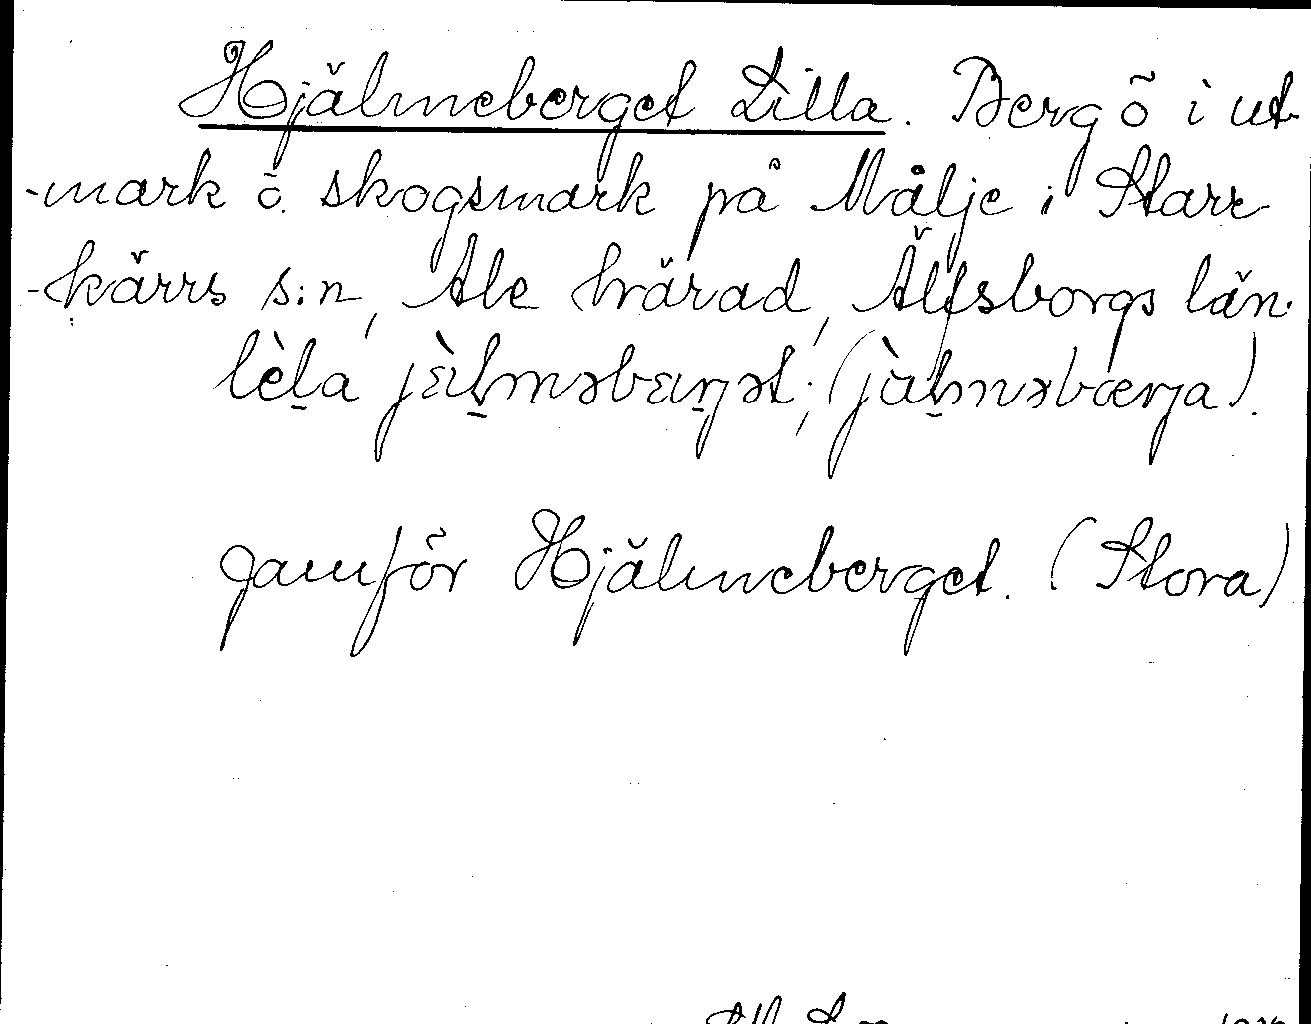 Hjälmeberget Lilla. Berg ö i ut-
-mark o. skogsmark på Målje i Starr-
-kärrs s:n, Ale härad, Älfsborgs län.
lèḷa jɛ̀ḷməbɛrjət; (jæ̀ḷməbærja).
Jämför Hjälmeberget. (Stora)